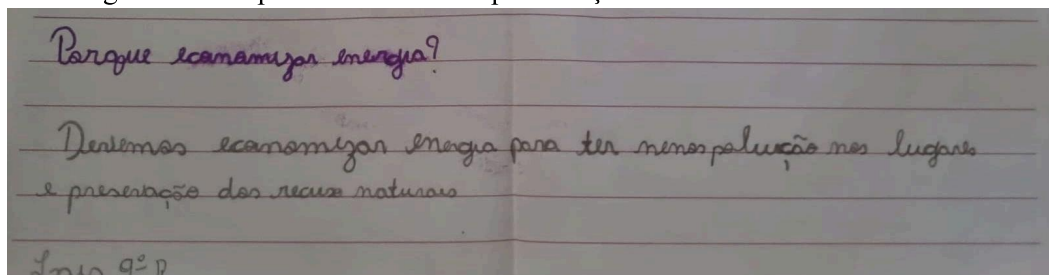 Porque economizar energia?
Devemos economizar energia para ter menos poluição nos lugares
e preservação dos recuso naturais
9º